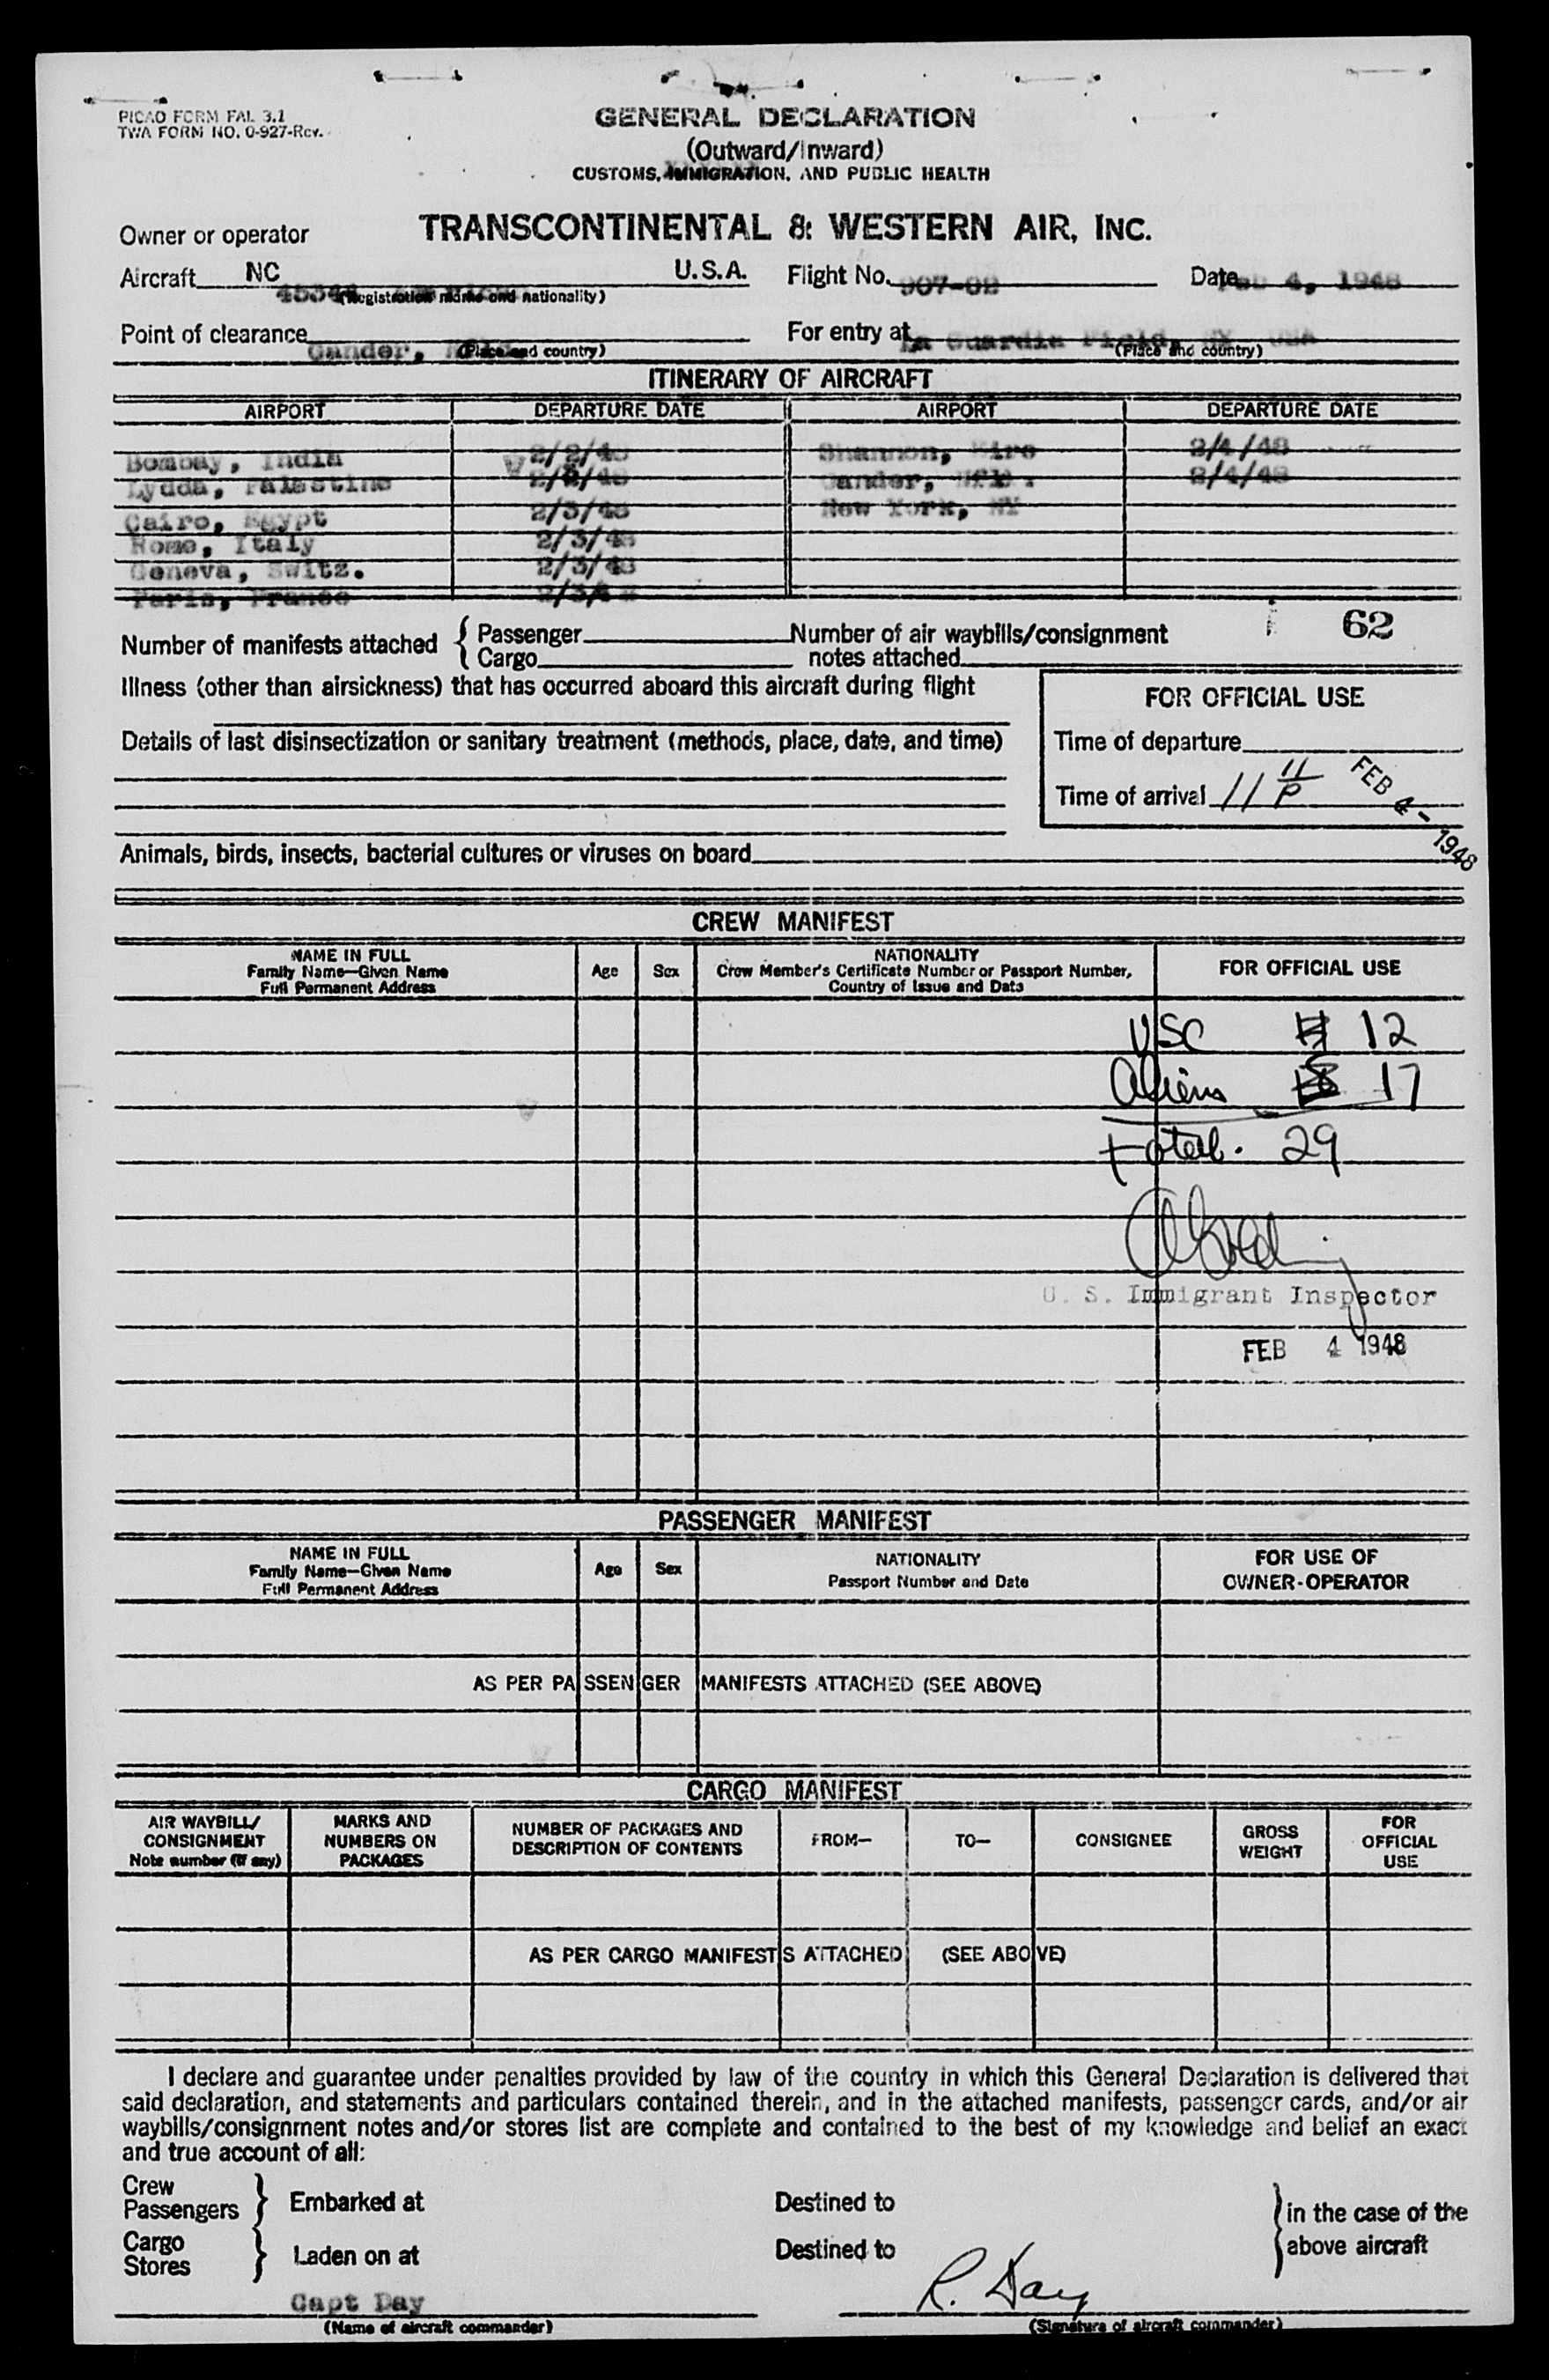 PICAO FORM FAL 3.1
TWA FORM NO. 0-927-Rev.
GENERAL DECLARATION
(Outward/Inward)
CUSTOMS, IMMIGRATION, AND PUBLIC HEALTH
Owner or operator TRANSCONTINENTAL & WESTERN AIR, INC.
Aircraft NC U.S.A. Flight No. 907-02 Date Feb 4, 1948
(Registration marks and nationality)
Point of clearance Gander, For entry at La Guardia Field, NY USA
(Place and country) (Place and country)
ITINERARY OF AIRCRAFT
AIRPORT DEPARTURE DATE AIRPORT DEPARTURE DATE
Bombay, India 2/2/48 Shannon, Eire 2/4/48
Lydda, Palestine 2/2/48 Gander, Nfld. 2/4/48
Cairo, Egypt 2/3/48 New York, NY
Rome, Italy 2/3/48
Geneva, Switz. 2/3/48
Paris, France
Number of manifests attached { Passenger Number of air waybills/consignment 62
Cargo notes attached
Illness (other than airsickness) that has occurred aboard this aircraft during flight
FOR OFFICIAL USE
Details of last disinsectization or sanitary treatment (methods, place, date, and time)
Time of departure
Time of arrival 11 11/P FEB 4 - 1948
Animals, birds, insects, bacterial cultures or viruses on board
CREW MANIFEST
NAME IN FULL
Family Name—Given Name
Full Permanent Address
Age Sex
NATIONALITY
Crew Member's Certificate Number or Passport Number,
Country of Issue and Date
FOR OFFICIAL USE
USC 12
Aliens 17
total. 29
U. S. Immigrant Inspector
FEB 4 1948
PASSENGER MANIFEST
NAME IN FULL
Family Name—Given Name
Full Permanent Address
Age Sex
NATIONALITY
Passport Number and Date
FOR USE OF
OWNER-OPERATOR
AS PER PASSENGER MANIFESTS ATTACHED (SEE ABOVE)
CARGO MANIFEST
AIR WAYBILL/
CONSIGNMENT
Note number (if any)
MARKS AND
NUMBERS ON
PACKAGES
NUMBER OF PACKAGES AND
DESCRIPTION OF CONTENTS
FROM—
TO—
CONSIGNEE
GROSS
WEIGHT
FOR
OFFICIAL
USE
AS PER CARGO MANIFESTS ATTACHED (SEE ABOVE)
I declare and guarantee under penalties provided by law of the country in which this General Declaration is delivered that
said declaration, and statements and particulars contained therein, and in the attached manifests, passenger cards, and/or air
waybills/consignment notes and/or stores list are complete and contained to the best of my knowledge and belief an exact
and true account of all:
Crew
Passengers } Embarked at Destined to } in the case of the
Cargo
Stores } Laden on at Destined to above aircraft
Capt Day R. Day
(Name of aircraft commander) (Signature of aircraft commander)